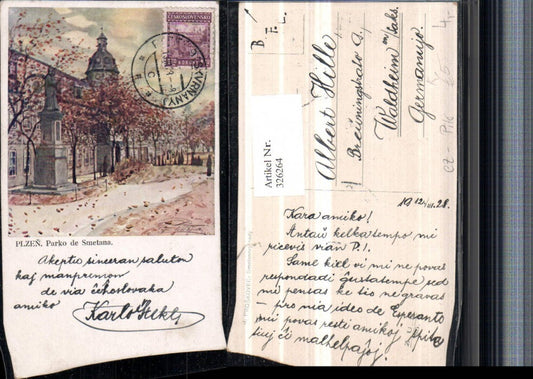 ČESKOSLOVENSKO
PLZEŇ. Parko de Smetana.
Akceptu sinceran saluton
kaj manpremon
de via ĉehoslovaka
amiko
B
F. L.
4,-
Albert Hille
Waldheim /Saks.
Germanujo
Artikel Nr.
326264
28.
Kara amiko!
Antaŭ kelka tempo mi
ricevis vian P.I.
Same kiel vi mi ne povas
respondadi ĝustatempe sed
mi pensas ke tio ne gravas
— pro nia ideo de Esperanto
ni povas resti amikoj
ĉi malhelpaĵoj.